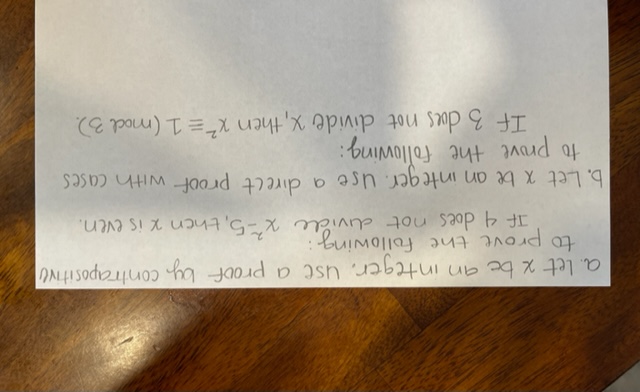 a. Let x be an integer. Use a proof by contrapositive
to prove the following:
If 4 does not divide x²-5, then x is even.
b. Let x be an integer. Use a direct proof with cases
to prove the following:
If 3 does not divide x, then x² ≡ 1 (mod 3).